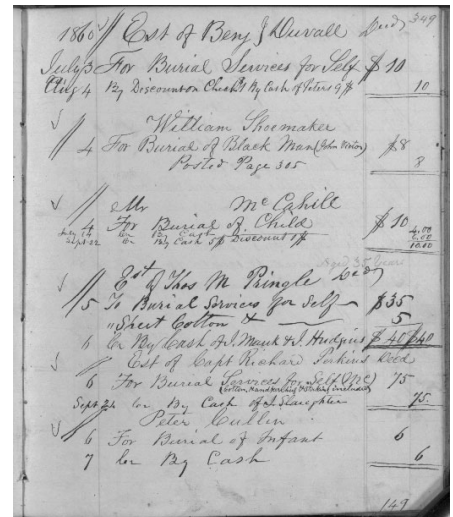 349
1860 Est of Benj J Duvall Decd
July 3 For Burial Services for Self $10
Aug 4 By Discount on Check $1 By Cash of Peters 9$ 10
William Shoemaker
4 For Burial of Black Man (John ) $8
Posted Page 305 8
Mr McCahill
4 For Burial of Child $10
July 14 Cr By Cash 4,00
Sept 22 Cr By Cash 5$ Discount 1$ 6,00
10,00
Aged 35 Years
Est of Thos M Pringle Decd
5 To Burial Services for Self $35
" Shirt Cotton & 5
6 Cr By Cash of J. Mank & J. Hudgins $40 $40
Est of Capt Richard Perkins Decd
6 For Burial Services for Self (MC) 75
(Cotton Handkerchief &
Sept 24 Cr By Cash of J. Slaughter 75
Peter Cullin
6 For Burial of Infant 6
7 Cr By Cash 6
149